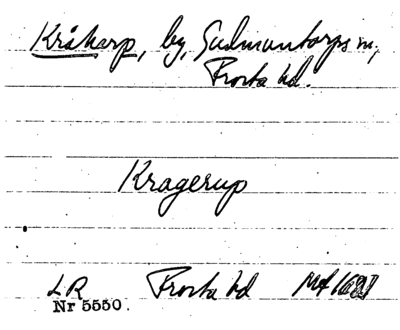 Kråkarp, by, Gudmuntorps sn,
Frosta hd.
Kragerup
LR Frosta hd
Nr 5550.